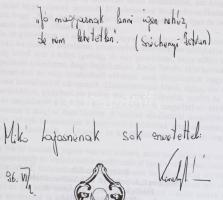 „Jó magyarnak lenni igen nehéz,
de nem lehetetlen". (Széchenyi István)
Mikó Lajosnénak sok szeretettel:
96. VII/